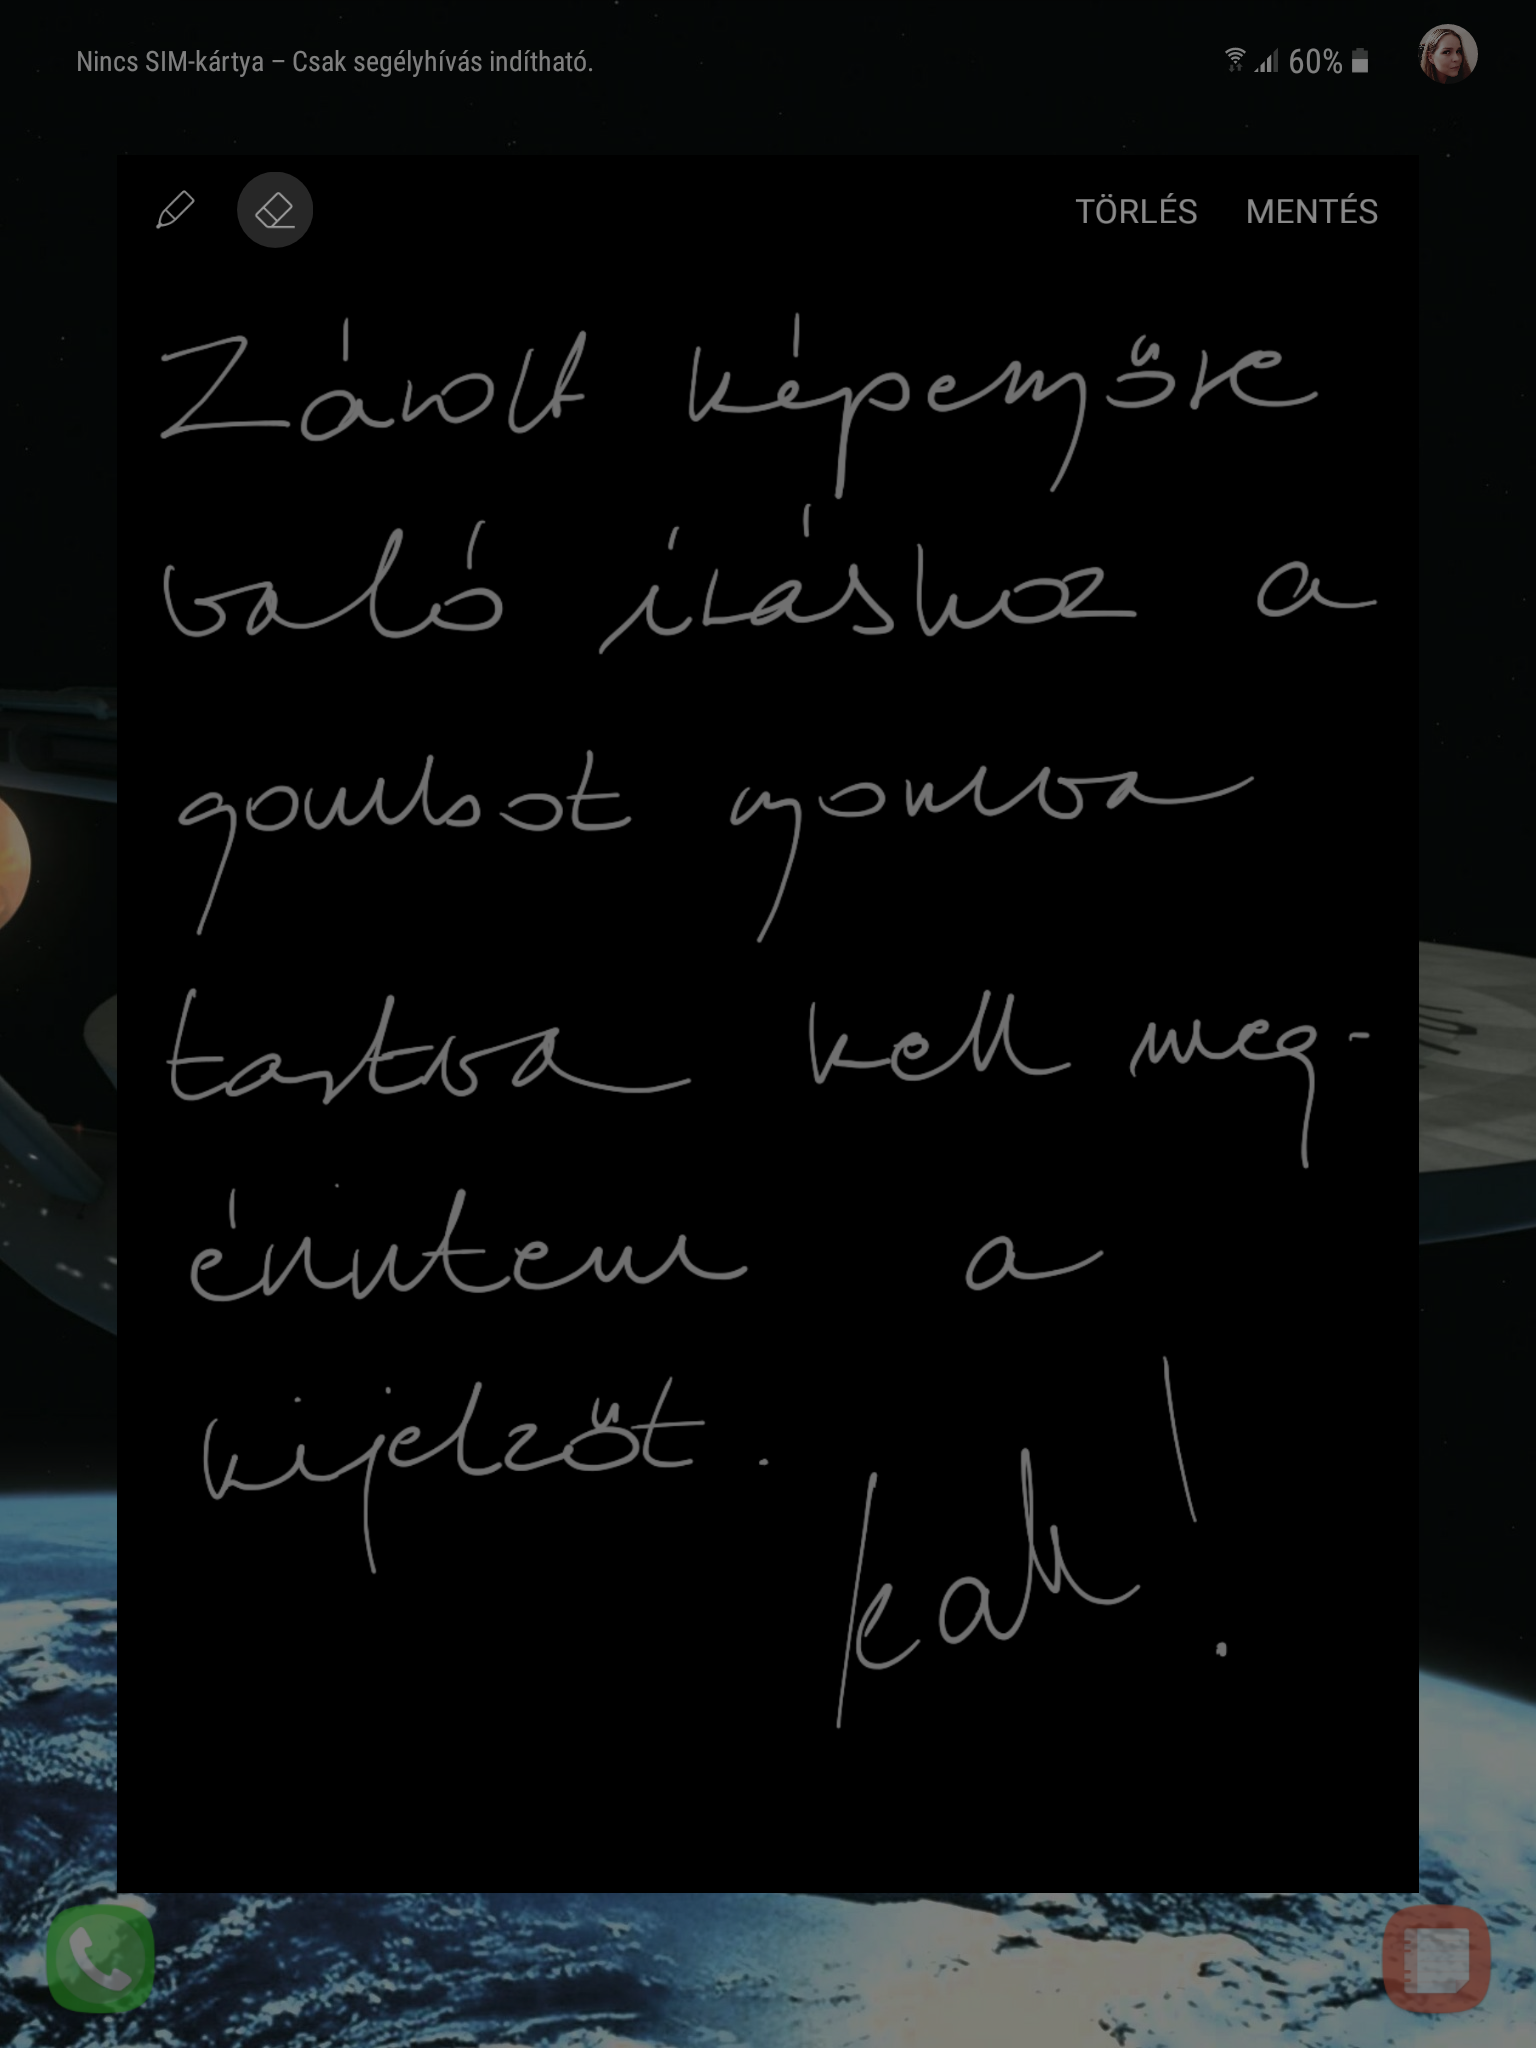 Nincs SIM-kártya – Csak segélyhívás indítható.
60%
TÖRLÉS MENTÉS
Zárolt képernyőre
való íráshoz a
gombot nyomva
tartva kell meg-
érintenem a
kijelzőt.
!